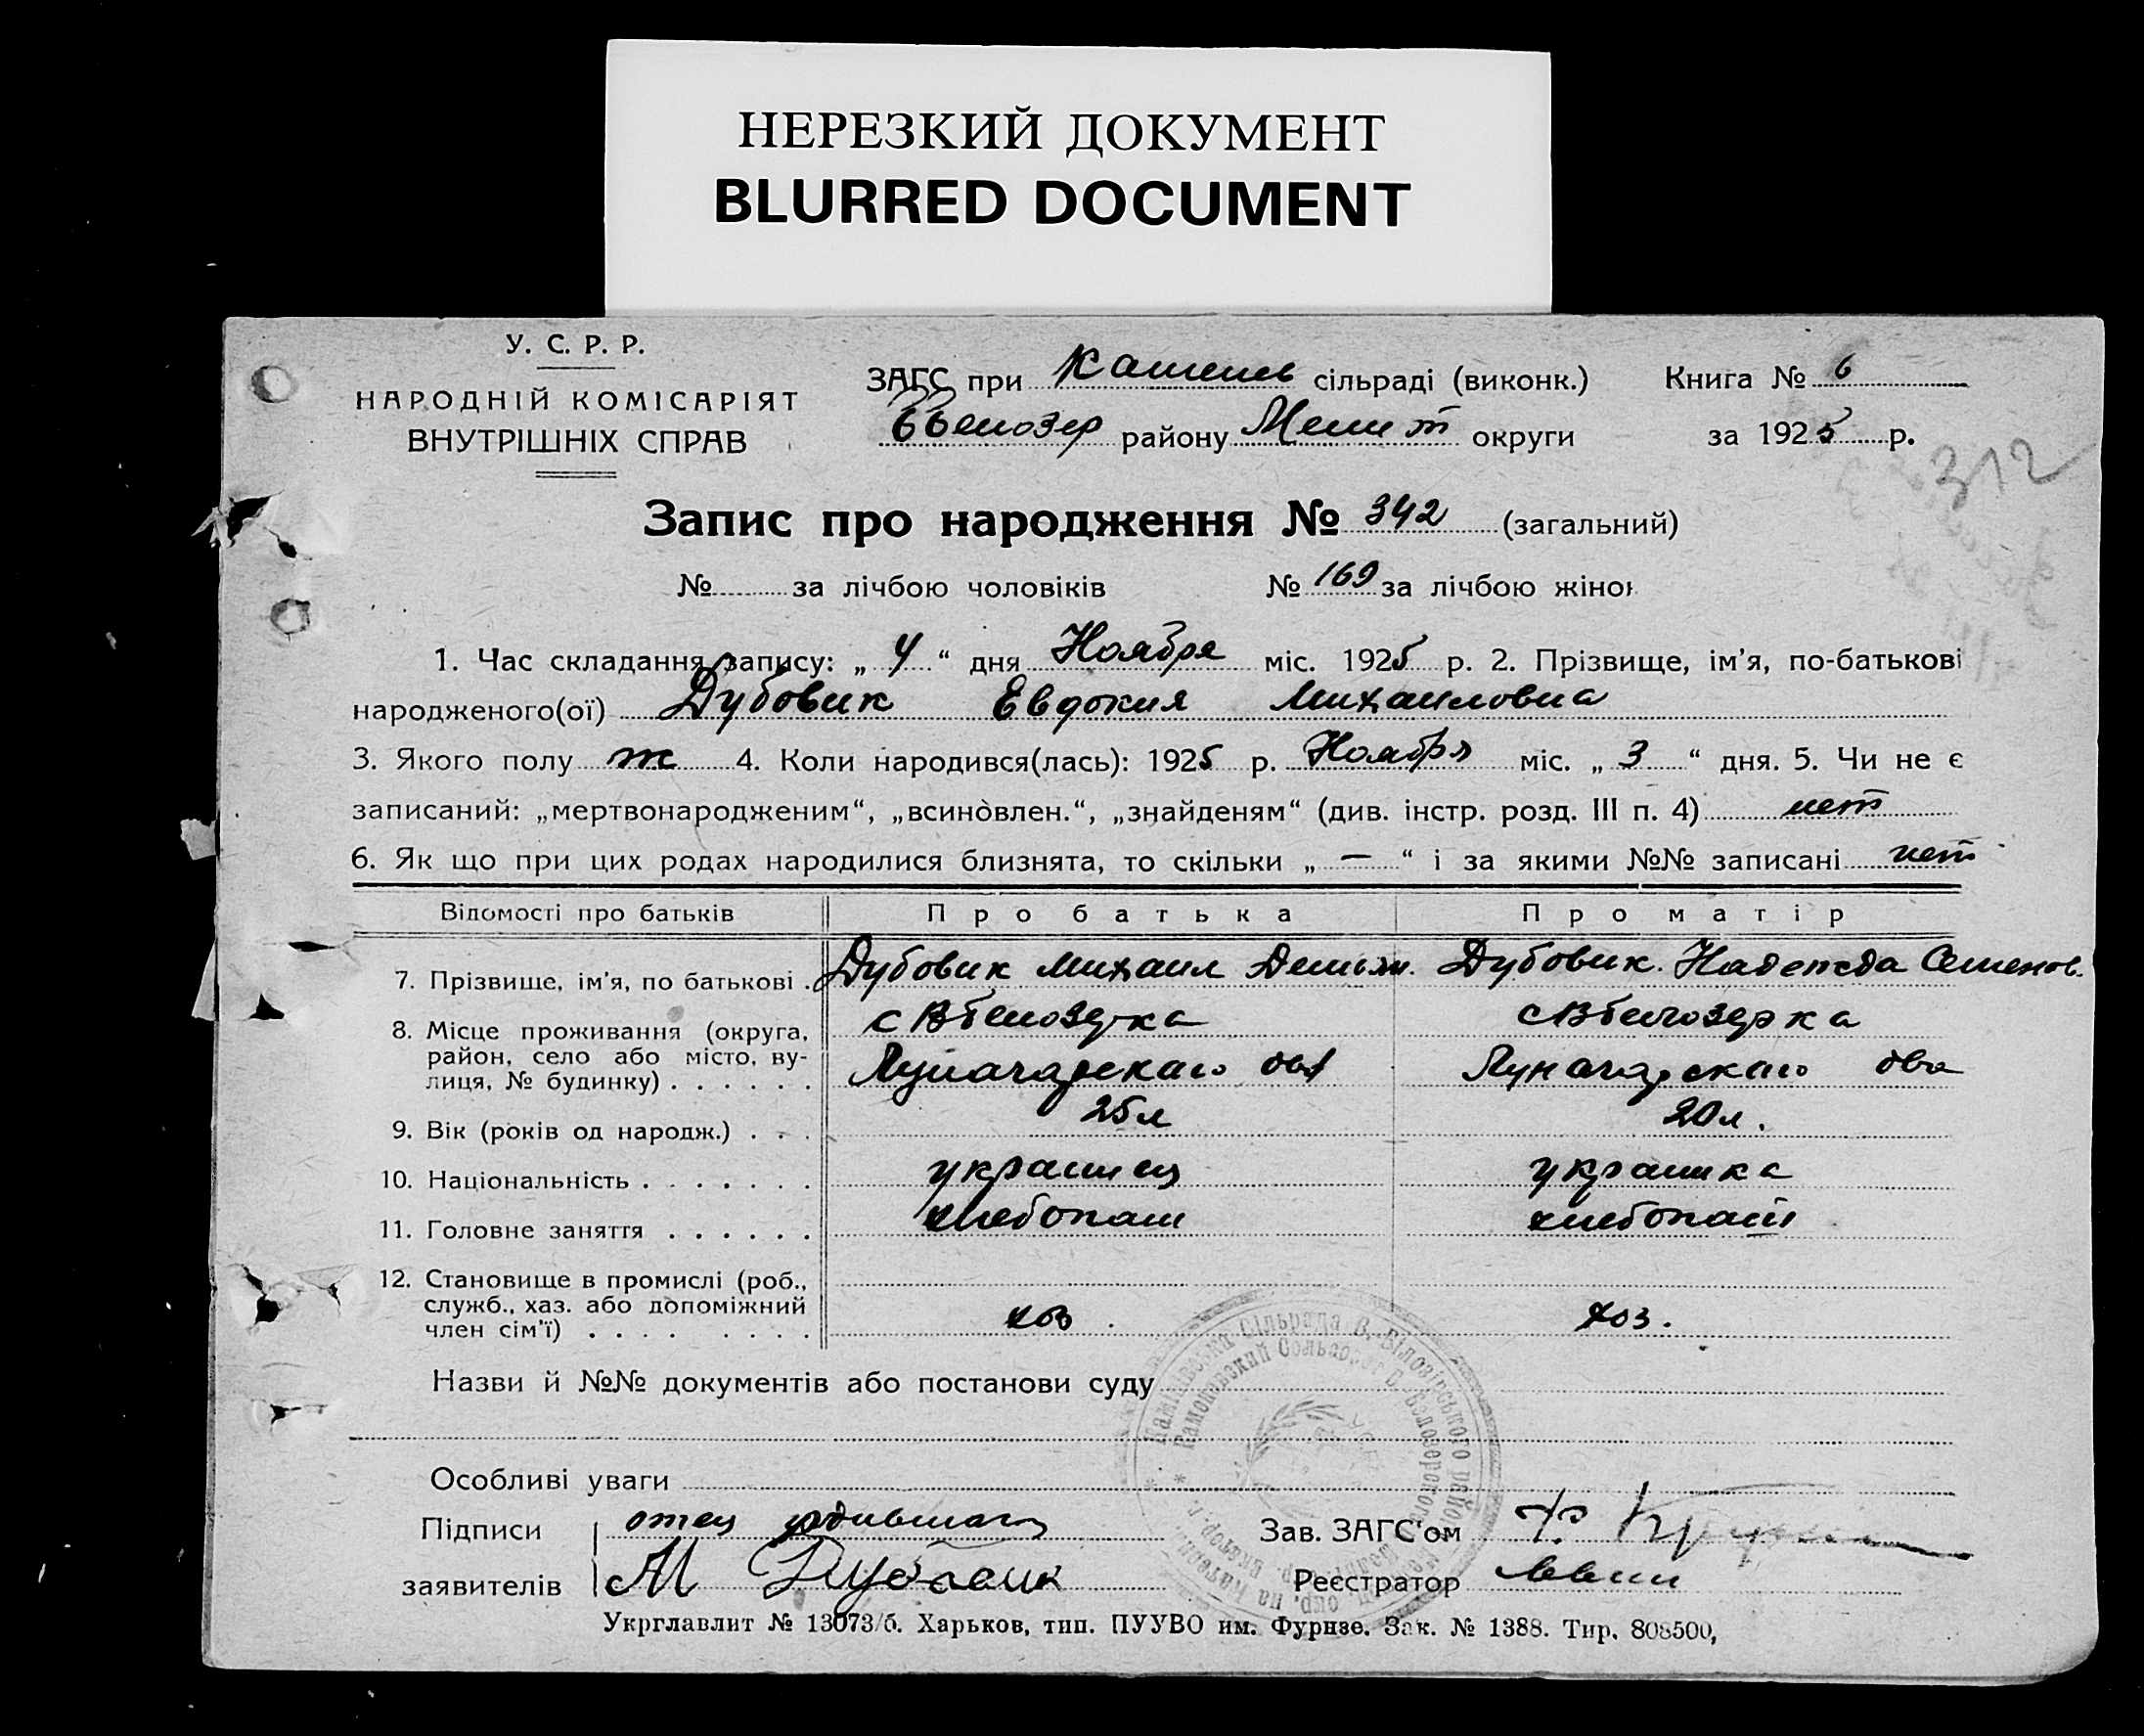 НЕРЕЗКИЙ ДОКУМЕНТ
BLURRED DOCUMENT
У. С. Р. Р.
НАРОДНІЙ КОМІСАРІЯТ
ВНУТРІШНІХ СПРАВ
ЗАГС при Каменев сільраді (виконк.)
ВБелозер району Мелит округи
Книга № 6
за 1925 р.
312
Запис про народження № 342 (загальний)
№ за лічбою чоловіків № 169 за лічбою жінок
1. Час складання запису: „ 4 “ дня Ноября міс. 1925 р. 2. Прізвище, ім'я, по-батькові
народженого(ої) Дубовик Евдокия Михаиловна
3. Якого полу ж 4. Коли народився(лась): 1925 р. Ноября міс. „ 3 “ дня. 5. Чи не є
записаний: „мертвонародженим“, „всиновлен.“, „знайденям“ (див. інстр. розд. III п. 4) нет
6. Як що при цих родах народилися близнята, то скільки „ — “ і за якими №№ записані нет
Відомості про батьків Про батька Про матір
7. Прізвище, ім'я, по батькові . Дубовик Михаил Демьян. Дубовик. Надежда Семенов.
8. Місце проживання (округа, с ВБелозерка с ВБелозерка
район, село або місто, ву-
лиця, № будинку) . . . . . . Луначарскаго об Луначарскаго
9. Вік (років од народж.) . . . 25 л 20 л.
10. Національність . . . . . . . украинец украинка
11. Головне заняття . . . . . . хлебопаш хлебопаш
12. Становище в промислі (роб.,
служб., хаз. або допоміжний
член сім'ї) . . . . . . . . хоз . хоз.
Назви й №№ документів або постанови суду
Особливі уваги
Підписи отец родившаго Зав. ЗАГС'ом
заявителів М Дубовик Реєстратор
Укрглавлит № 13073/б. Харьков, тип. ПУУВО им. Фрунзе. Зак. № 1388. Тир. 808500,